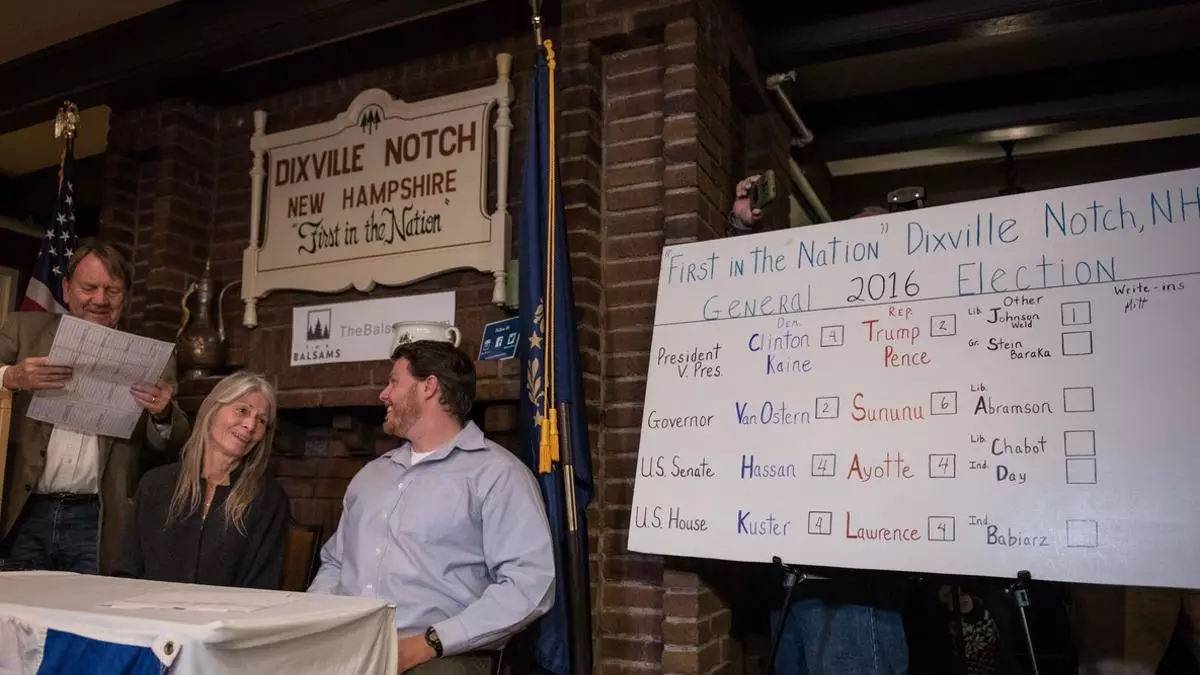 DIXVILLE NOTCH
NEW HAMPSHIRE
"First in the Nation"
TheBals
THE
BALSAMS
"First in the Nation" Dixville Notch, NH
General 2016 Election
President
V. Pres.
Dem.
Clinton 4
Kaine
Rep.
Trump 2
Pence
Other
Lib. Johnson 1
Weld
Gr. Stein
Baraka
Write-ins
Mitt
Governor Van Ostern 2 Sununu 6 Lib. Abramson
U.S. Senate Hassan 4 Ayotte 4 Lib. Chabot
Ind. Day
U.S. House Kuster 4 Lawrence 4 Ind Babiarz